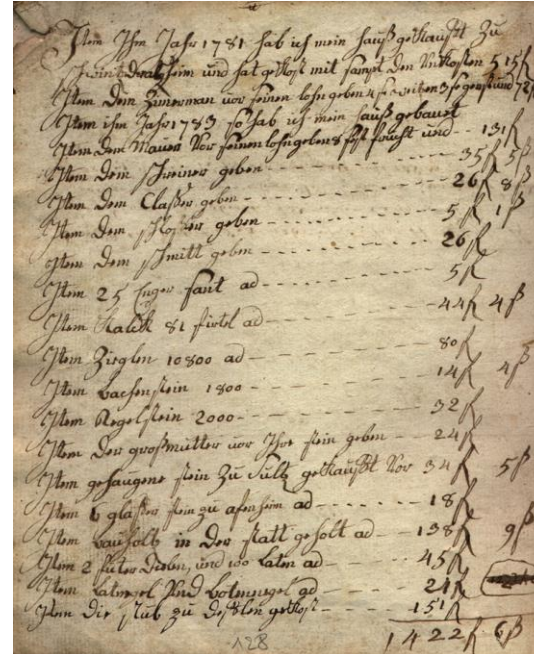 Item Ihm Jahr 1781 hab ich mein hauß gekaufft Zu
und hat gekost mit sampt den Unkosten 515 f
Item dem Zimerman vor seinen lohn geben 4 f weitzen 3 f gerst und 72 f
Item ihm Jahr 1783 so hab ich mein hauß gebauet
Item dem Maurer Vor seinen lohn geben 8 frucht und - - 131 f
Item dem schreiner geben - - - 35 f 5 ß
Item dem Claßer geben - - - 26 f 8 ß
Item dem schloßer geben - - - 5 f 1 ß
Item dem schmitt geben - - - 26 f
Item 25 sant ad - - - 5 f
Item Kalick 81 firtel ad - - - 44 f 4 ß
Item Zieglen 10800 ad - - - 80 f
Item bachenstein 1800 - - - 14 f 4 ß
Item Regelstein 2000 - - - 32 f
Item der großmutter vor Ihre stein geben - 24 f
Item gehaugene stein Zu Sultz gekaufft Vor 34 f 5 ß
Item 6 glaßer stein zu afenheim ad - - - 18 f
Item bauholtz in der statt geholt ad - - 138 f 9 ß
Item 2 futer und 100 laten ad - - - 45 f
Item latnegel und botennegel ad - - - 21 f
Item die stub zu gekost - - - 151 f
1422 f 6 ß
128